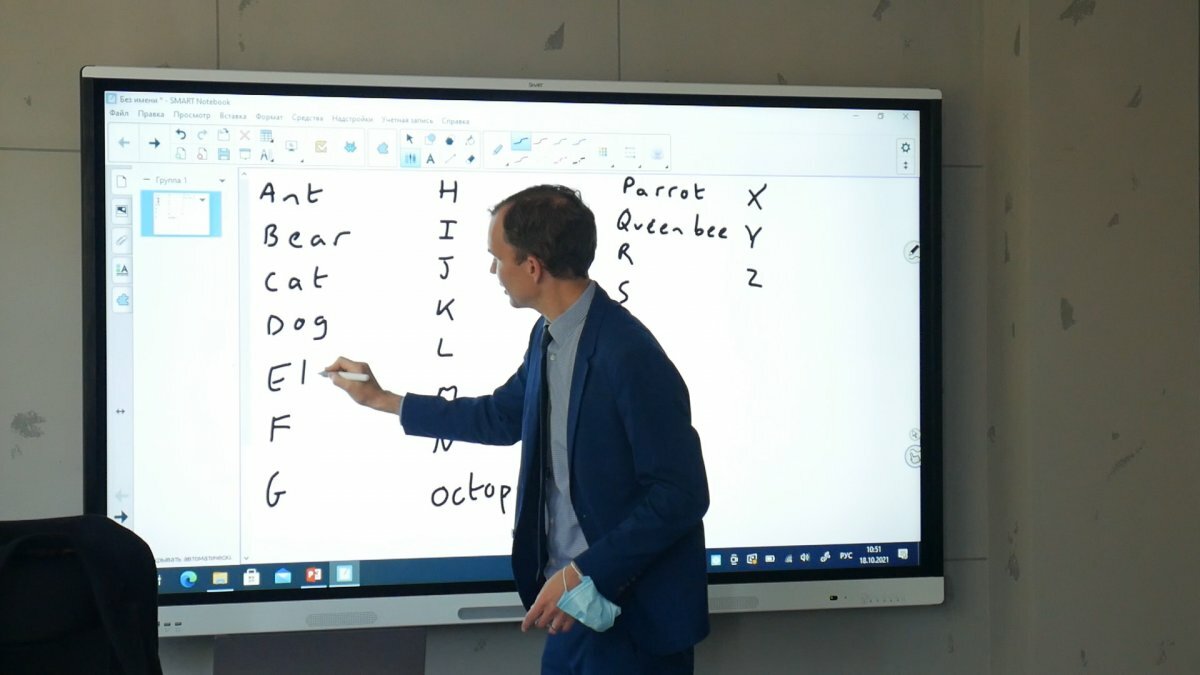 SMART
Без имени * - SMART Notebook
Файл Правка Просмотр Вставка Формат Средства Надстройки Учётная запись Справка
Группа 1
Ant
Bear
Cat
Dog
El
F
G
H
I
J
K
L
M
N
octop
Parrot
Queen bee
R
S
X
Y
Z
автоматически
РУС
10:51
18.10.2021